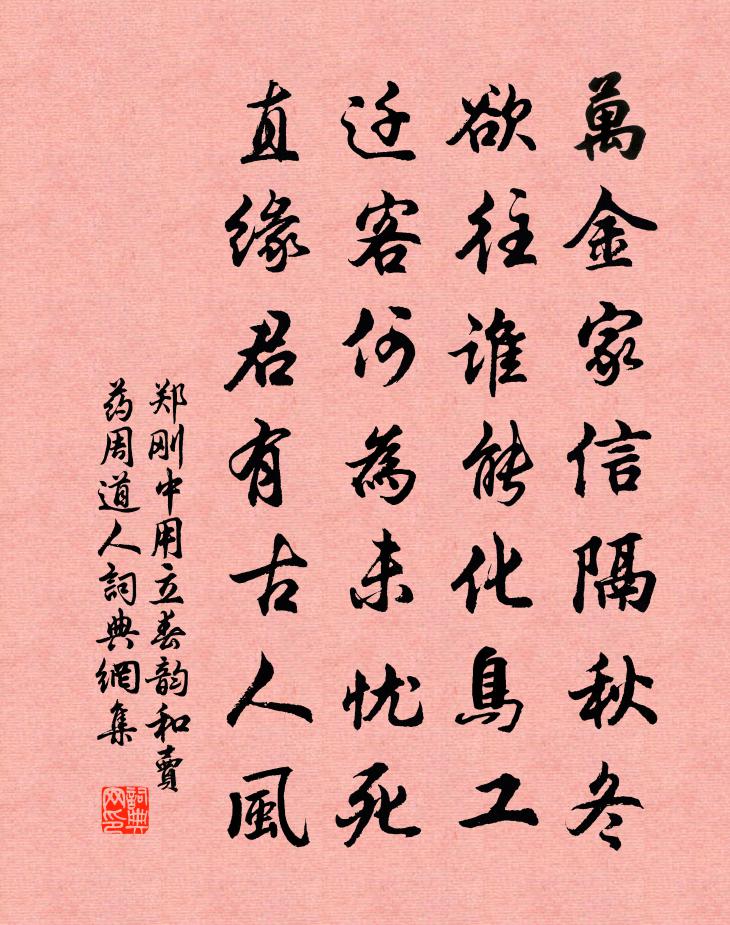 萬金家信隔秋冬
欲往谁能化鳥工
迁客何為未忧死
直缘君有古人風
郑刚中用立春韵和賣
药周道人詞典網集
詞典
网印